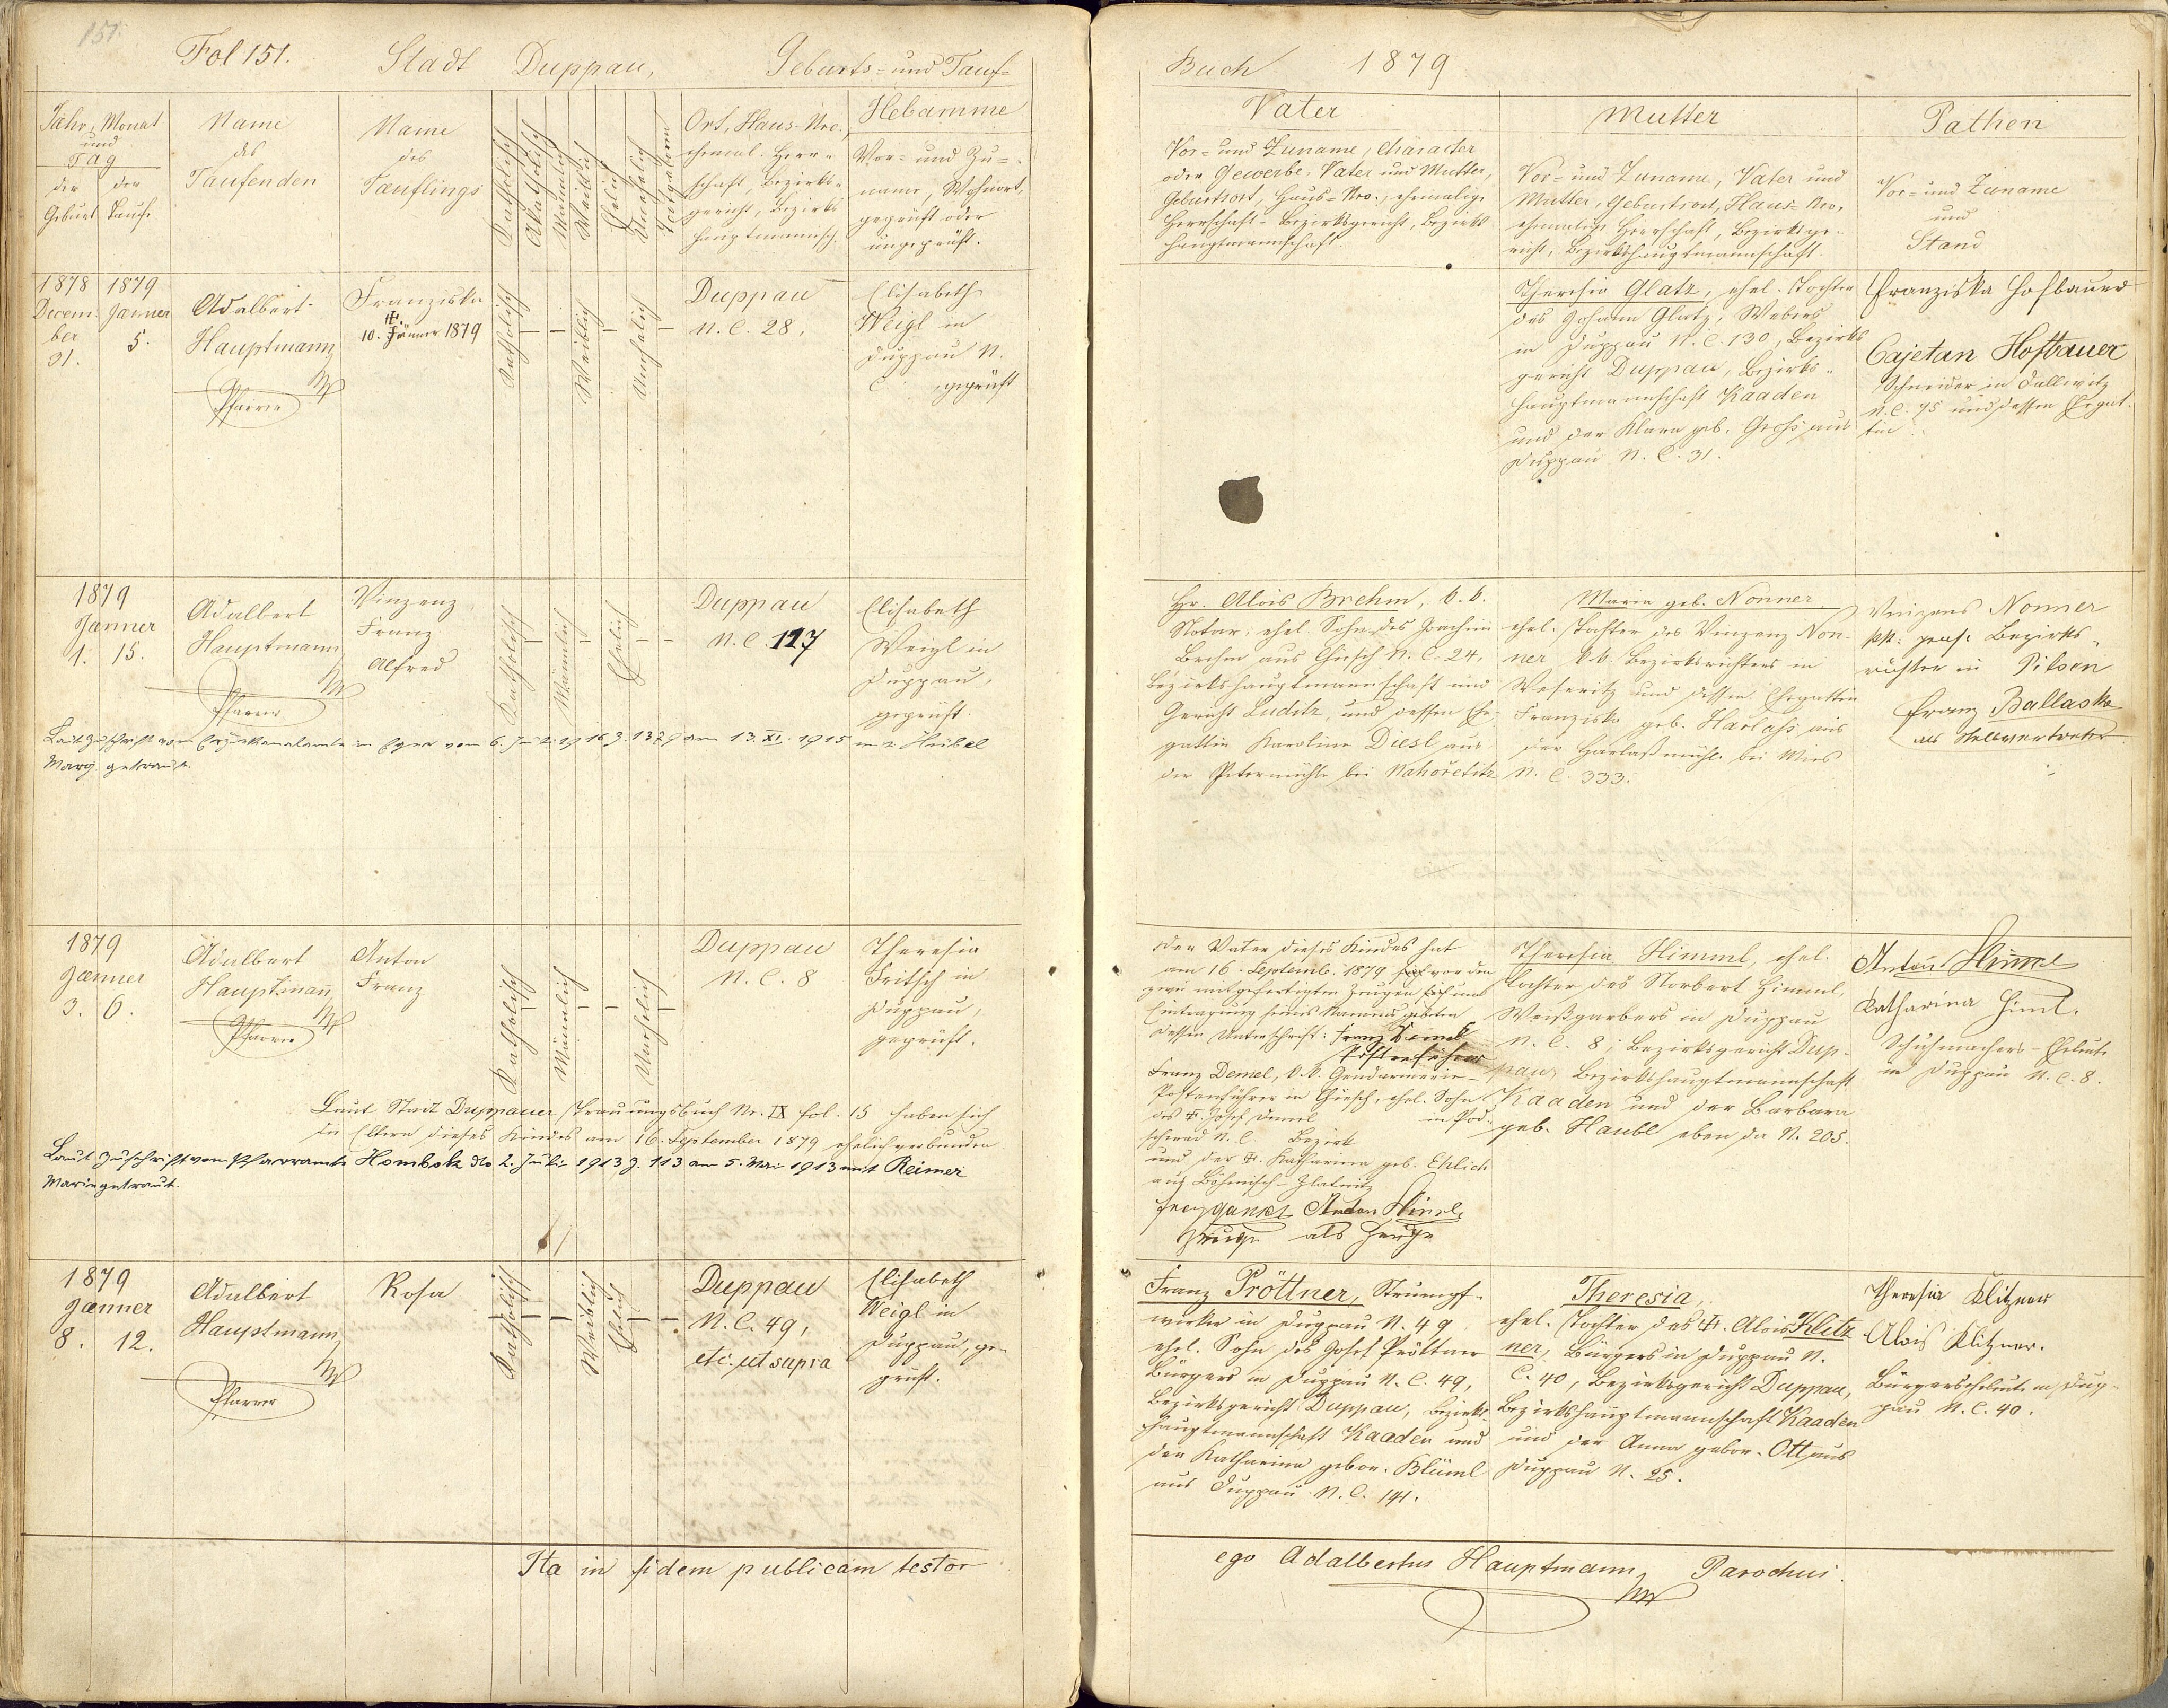 151.
Fol 151. Stadt Duppau, Geburts- und Tauf-
Jahr, Monat
und
Tag
der Geburt
der Taufe
Name
des
Taufenden
Name
des
Täuflings
Katholisch
Akatholisch
Männlich
Weiblich
Ehelich
Unehelich
Ort, Haus-Nro.,
ehemal. Herr-
schaft, Bezirks-
gericht, Bezirks
hauptmannsch.
Hebamme
Vor- und Zu-
name, Wohnort,
geprüft oder
ungeprüft.
1878 1879
Decem- Jänner
ber 5.
31.
Adalbert
Hauptmann
Pfarrer
Franziska
10. Jänner 1879
Katholisch
Weiblich
Unehelich
Duppau
N. C. 28.
Elisabeth
Weigl in
Duppau N.
C. geprüft
1879
Jænner
1. 15.
Adalbert
Hauptmann
Pfarrer
Vinzenz
Franz
Alfred
Katholisch
Männlich
Ehelich
Duppau
N. C. 127
Elisabeth
Weigl in
Duppau,
geprüft.
1915 m. Heibel
Marg. getraut.
1879
Jænner
3. 6.
Adalbert
Hauptmann
Pfarrer
Anton
Franz
Katholisch
Männlich
Unehelich
Duppau
N. C. 8
Theresia
Fritsch in
Duppau,
geprüft.
Laut Stadt Duppauer Trauungsbuch Nr. IX fol. 15 haben sich
die Eltern dieses Kindes am 16. September 1879 ehelich verbunden
Laut Zuschrift vom Pfarramte Hombok dto 2. Juli 1913 Z. 113 am 5. Mai 1913 mit Reimer
Marie getraut.
1879
Jænner
8. 12.
Adalbert
Hauptmann
Pfarrer
Rosa
Katholisch
Weiblich
Ehelich
Duppau
N. C. 49,
etc. ut supra
Elisabeth
Weigl in
Duppau, ge-
prüft.
Ita in fidem publicam testor
Buch 1879
Vater
Vor- und Zuname, Character
oder Gewerbe, Vater und Mutter,
Geburtsort, Haus-Nro., ehemalige
Herrschaft- Bezirksgericht, Bezirks
hauptmannschaft.
Mutter
Vor- und Zuname, Vater und
Mutter, Geburtsort, Haus-Nro.
ehemalige Herrschaft, Bezirksge-
richt, Bezirkshauptmannschaft.
Pathen
Vor- und Zuname
und
Stand
Theresia Glatz, ehel. Tochter
des Johann Glatz, Webers
in Duppau N. C. 130, Bezirks
gericht Duppau, Bezirks-
hauptmannschaft Kaaden
und der Klara geb. Groß aus
Duppau N. C. 31.
Franziska Hofbauer
Cajetan Hofbauer
Schneider in Dallwitz
N. C. 45 und dessen Ehegat-
tin
Hr. Alois Brehm, k. k.
Notar, ehel. Sohn des Joachim
Brehm aus Chiesch N. C. 24,
Bezirkshauptmannschaft und
Gericht Luditz, und dessen Ehe-
gattin Karoline Diesl aus
der Petermühle bei Nahořetitz
Maria geb. Nonner
ehel. Tochter des Vinzenz Non-
ner k. k. Bezirksrichters in
Weseritz und dessen Ehegattin
Franziska geb. Harlaß aus
der Harlaßmühle bei Mies
N. C. 333.
Vinzens Nonner
kk. pens. Bezirks-
richter in Pilsen
Franz Ballasko
als Stellvertreter
Der Vater dieses Kindes hat
am 16. Septemb. 1879 vor den
zwei mitgefertigten Zeugen um
Eintragung seines Namens gebeten
dessen Unterschrift: Franz Demel
Postenführer
Franz Demel, k. k. Gendarmerie-
Postenführer in Chiesch, ehel. Sohn
des Josef Demel in Pod-
scherad N. C. Bezirk
und der Katharina geb. Ehlich
aus Böhmisch-Zlatnitz
Anton Himml
Zeuge als Zeuge
Theresia Himml, ehel.
Tochter des Norbert Himml,
Weißgerbers in Duppau
N. C. 8; Bezirksgericht Dup-
pau, Bezirkshauptmannschaft
Kaaden und der Barbara
geb. Haubl eben da N. 205.
Anton Himml
Katharina Himl.
Schuhmachers-Eheleute
in Duppau N. C. 8.
Franz Pröttner, Strumpf-
wirker in Duppau N. 49
ehel. Sohn des Josef Pröttner
Bürgers in Duppau N. C. 49,
Bezirksgericht Duppau, Bezirks-
hauptmannschaft Kaaden und
der Katharina gebor. Blüml
aus Duppau N. C. 141.
Theresia,
ehel. Tochter des Alois Klitz
ner, Bürgers in Duppau N.
C. 40, Bezirksgericht Duppau,
Bezirkshauptmannschaft Kaaden
und der Anna gebor. Ott aus
Duppau N. 25.
Theresia Klitzner
Alois Klitzner.
Bürgerseheleute in Dup-
pau N. C. 40.
ego Adalbertus Hauptmann Parochus.